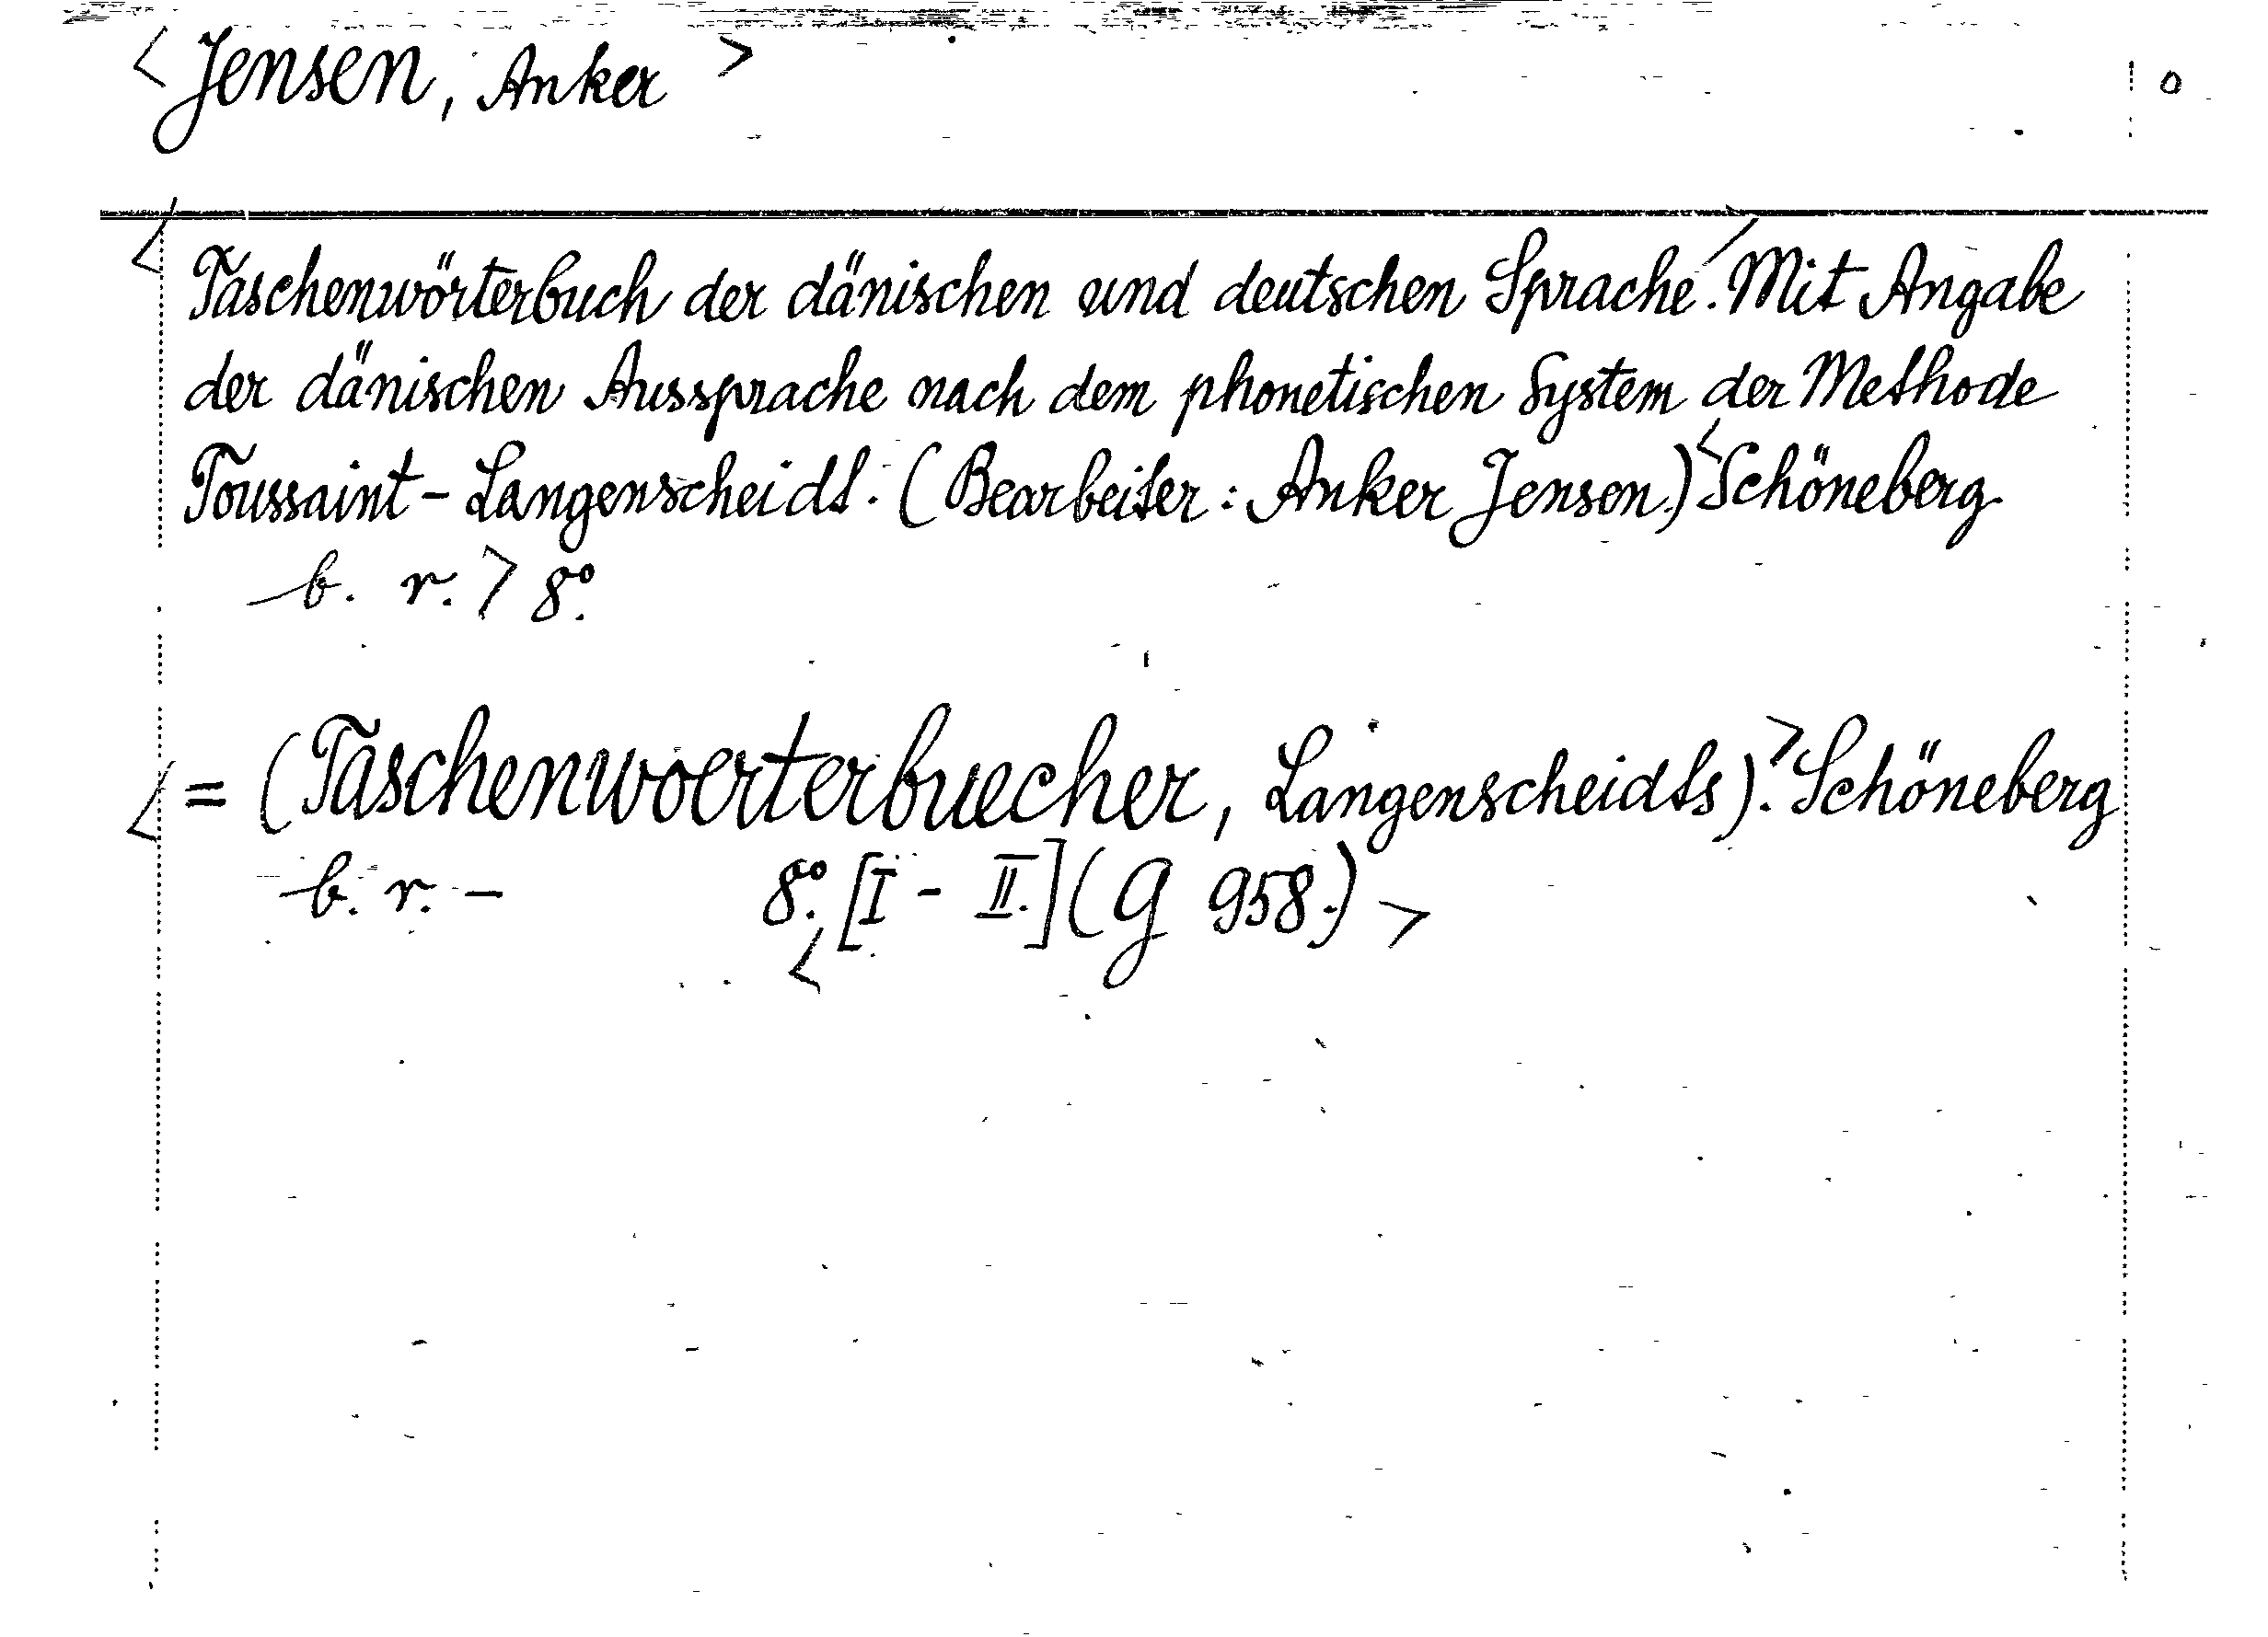 < Jensen, Anker > o
< Taschenwörterbuch der dänischen und deutschen Sprache./ Mit Angabe
der dänischen Aussprache nach dem phonetischen System der Methode
Toussaint-Langenscheidt. (Bearbeiter: Anker Jensen.) < Schöneberg
b. r. > 8°.
< = (Taschenwoerterbuecher, Langenscheidts). > Schöneberg
b. r. - 8°. < [I - II.] (G 958.) >